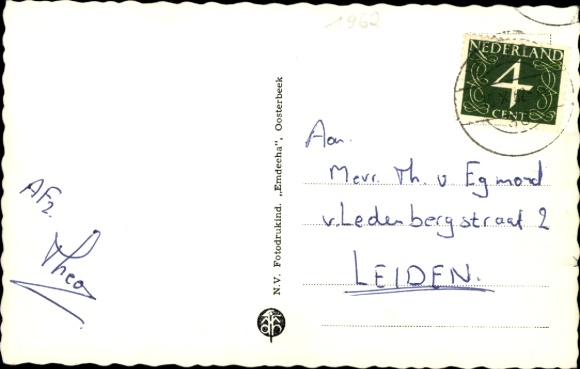 1962
NEDERLAND
4
CENT
N.V. Fotodrukind. „Emdeeha", Oosterbeek
Aan.
Mevr. Th. v Egmond
v. Ledenbergstraat 2
LEIDEN.
AFZ.
Theo